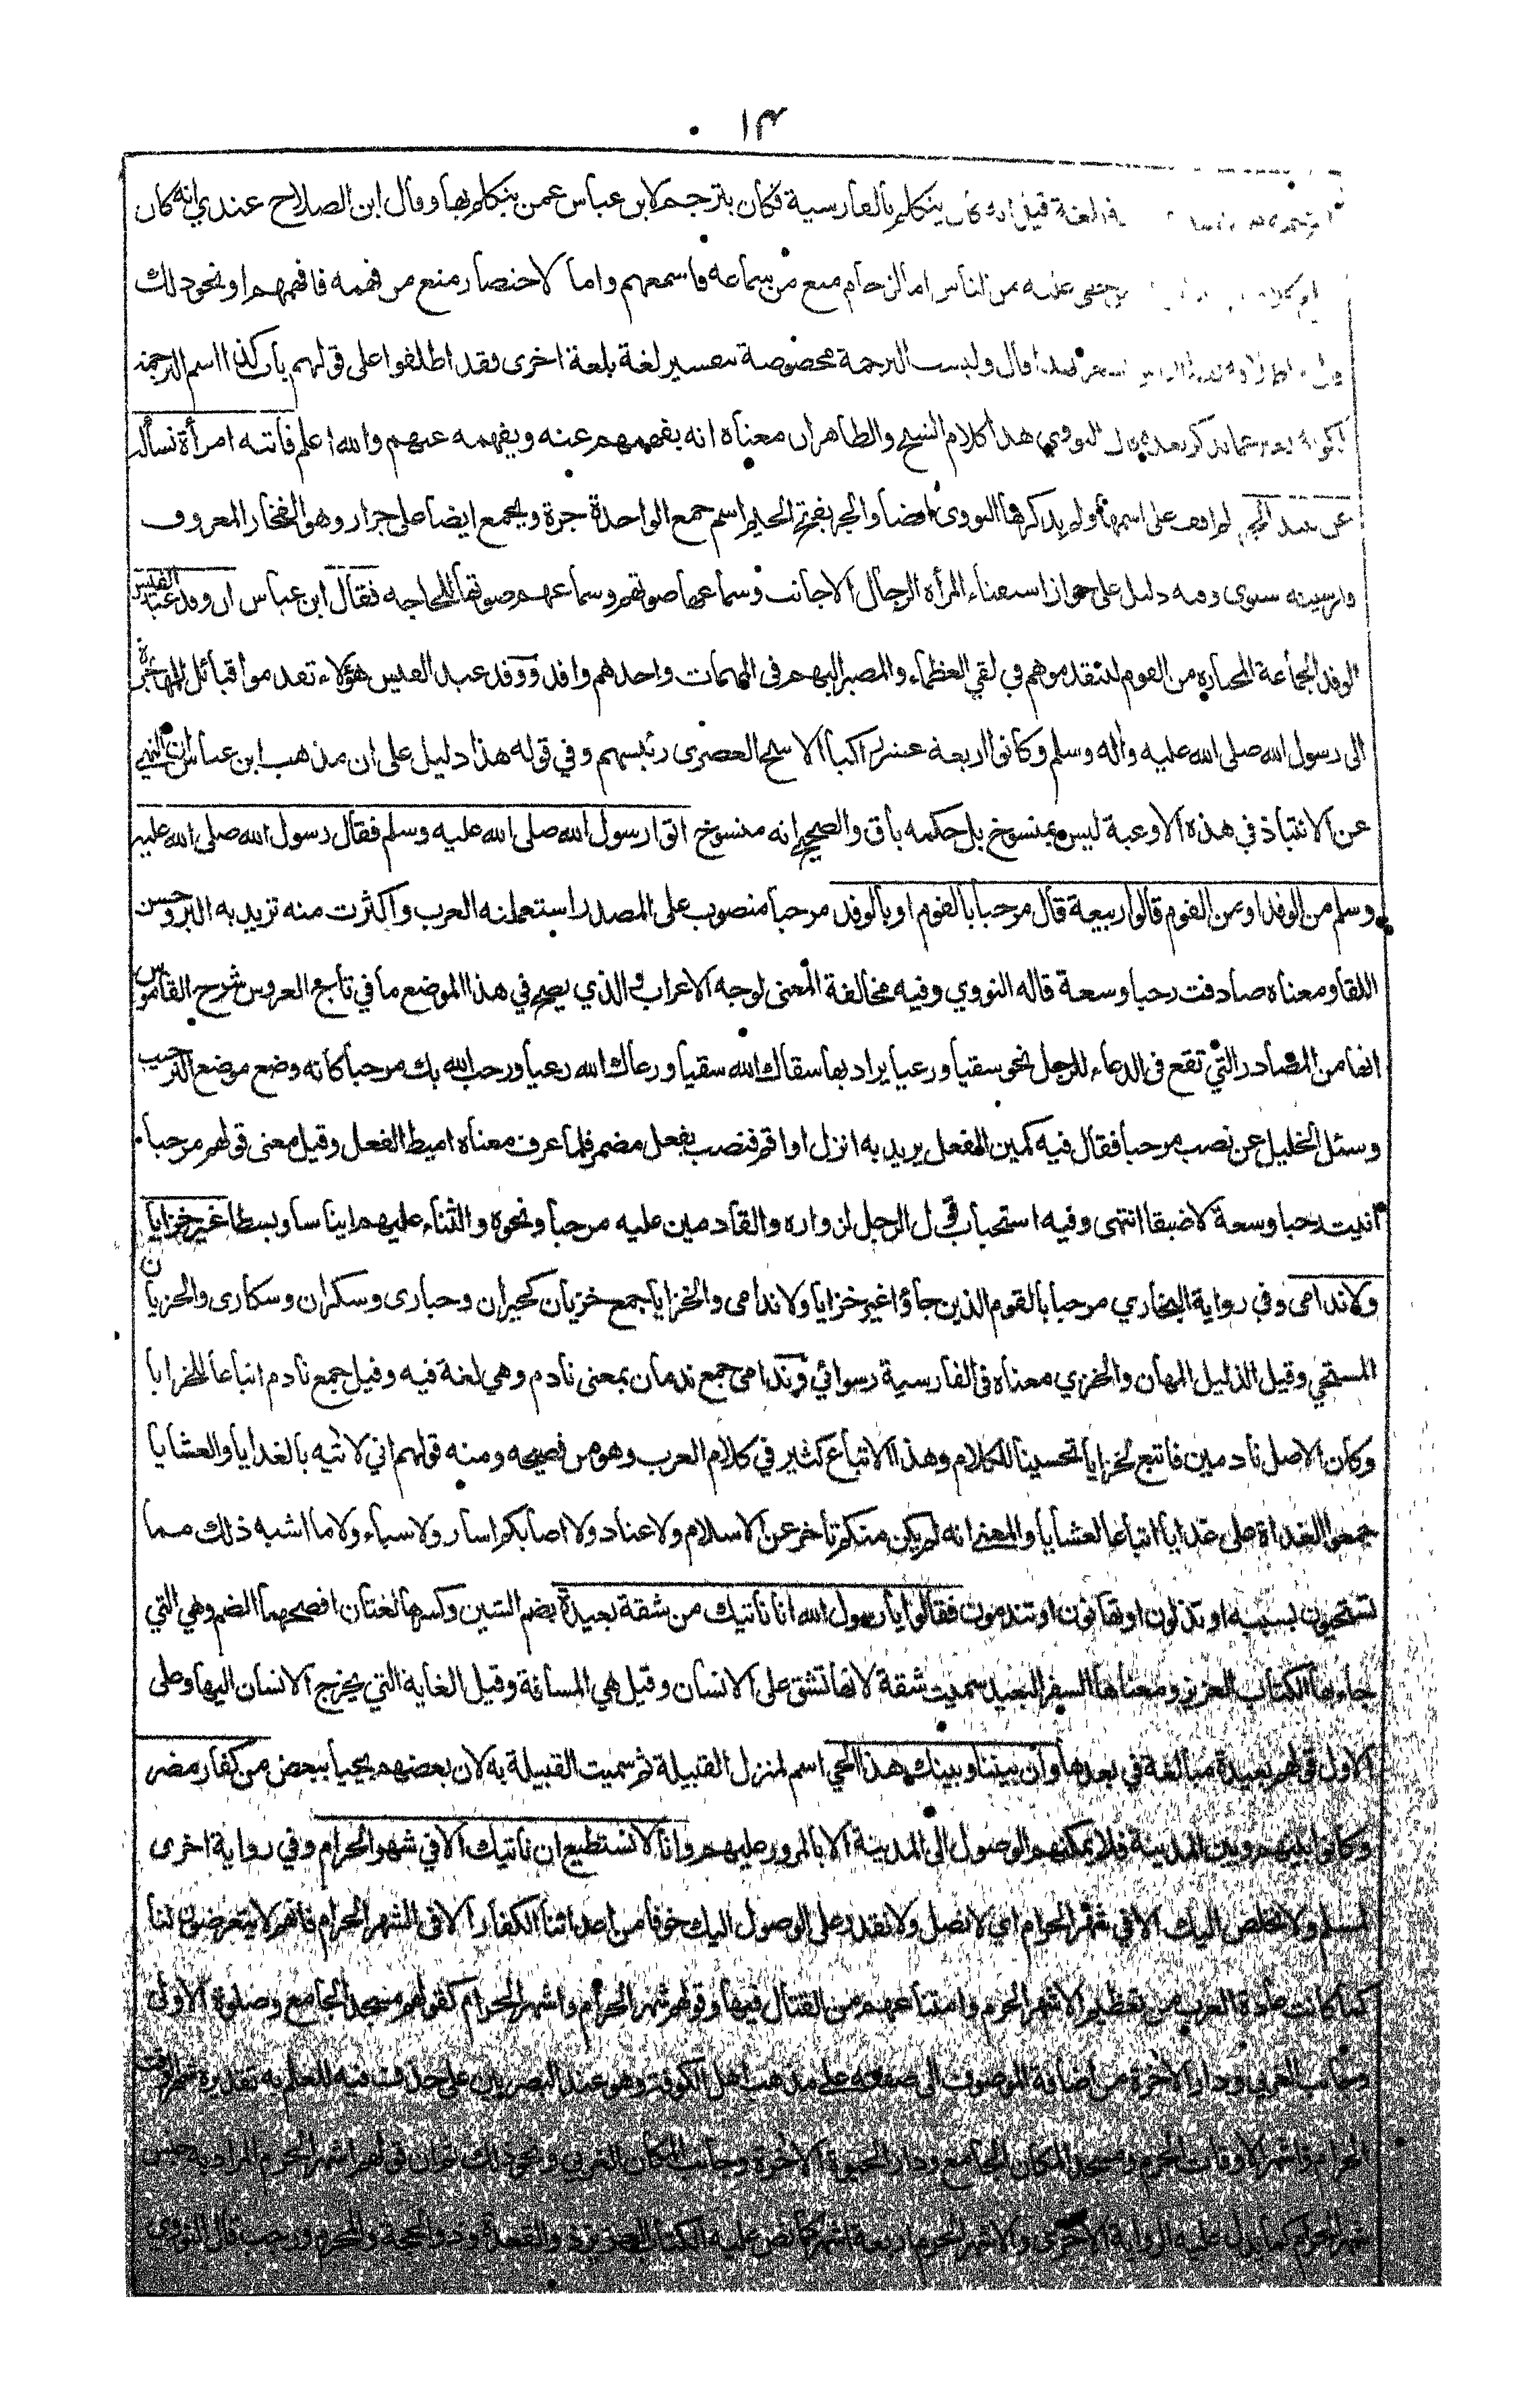 ١٣
بلغة قيل انه كان يتكلم بالفارسية فكان يترجم لابن عباس عمن يتكلم بها وقال ابن الصلاح عندي انه كان
خفي عليه من الناس اما لزحام منع من سماعه فاسمعهم واما لاختصار منع من فهمه فافهمهم او نحو ذلك
قال وليست الترجمة مخصوصة بتفسير لغة بلغة اخرى فقد اطلقوا على قولهم باب كذا اسم الترجمة
النووي هذا كلام الشيخ والظاهر ان معناه انه يفهمهم عنه ويفهمه عنهم والله اعلم فاتته امرأة تسأله
عن نبيذ الجر لم اقف على اسمها ولم يذكرها النووي ايضا والجر بفتح الجيم اسم جمع الواحدة جرة ويجمع ايضا على جرار وهو الفخار المعروف
وفيه دليل على جواز استفتاء المرأة الرجال الاجانب وسماعها صوتهم وسماعهم صوتها للحاجة فقال ابن عباس ان وفد عبد القيس
الوفد الجماعة المختارة من القوم ليتقدموهم في لقي العظماء والمصير اليهم في المهمات واحدهم وافد ووفد عبد القيس هؤلاء تقدموا قبائل للمهاجرة
الى رسول الله صلى الله عليه واله وسلم وكانوا اربعة عشر راكبا الاشج العصري رئيسهم وفي قوله هذا دليل على ان مذهب ابن عباس ان النهي
عن الانتباذ في هذه الاوعية ليس بمنسوخ بل حكمه باق والصحيح انه منسوخ اتوا رسول الله صلى الله عليه وسلم فقال رسول الله صلى الله عليه
وسلم من الوفد او من القوم قالوا ربيعة قال مرحبا بالقوم او بالوفد مرحبا منصوب على المصدر استعملته العرب واكثرت منه تريد به البر وحسن
اللقا ومعناه صادفت رحبا وسعة قاله النووي وفيه مخالفة المعنى لوجه الاعراب والذي يصح في هذا الموضع ما في تاج العروس شرح القاموس
انها من المصادر التي تقع في الدعاء للرجل نحو سقيا ورعيا يراد بها سقاك الله سقيا ورعاك الله رعيا ورحب الله بك مرحبا كانه وضع موضع الترحيب
وسئل الخليل عن نصب مرحبا فقال فيه كمين الفعل يريد به انزل او اقم فنصب بفعل مضمر فلما عرف معناه اميط الفعل وقيل معنى قولهم مرحبا
اتيت رحبا وسعة لا ضيقا انتهى وفيه استحباب قول الرجل لزواره والقادمين عليه مرحبا ونحوه والثناء عليهم ايناسا وبسطا غير خزايا
ولا ندامى وفي رواية البخاري مرحبا بالقوم الذين جاؤا غير خزايا ولا ندامى والخزايا جمع خزيان كحيران وحيارى وسكران وسكارى والخزيان
المستحي وقيل الذليل المهان والخزي معناه في الفارسية رسوائي وندامى جمع ندمان بمعنى نادم وهي لغة فيه وقيل جمع نادم اتباعا للخزايا
وكان الاصل نادمين فاتبع لخزايا تحسينا للكلام وهذا الاتباع كثير في كلام العرب وهو من فصيحه ومنه قولهم اني لاتيه بالغدايا والعشايا
جمعوا الغداة على غدايا اتباعا لعشايا والمعنى انه لم يكن منكم تأخر عن الاسلام ولا عناد ولا اصابكم اسار ولا سباء ولا ما اشبه ذلك مما
تستحيون بسببه او تذلون او تهانون او تندمون فقالوا يا رسول الله انا نأتيك من شقة بعيدة بضم الشين وكسرها لغتان افصحهما الضم وهي التي
جاء بها الكتاب العزيز ومعناها السفر البعيد سميت شقة لانها تشق على الانسان وقيل هي المسافة وقيل الغاية التي يخرج الانسان اليها وعلى
الاول قولهم بعيدة مبالغة في بعدها وان بيننا وبينك هذا الحي اسم لمنزل القبيلة ثم سميت القبيلة به لان بعضهم يحيا ببعض من كفار مضر
وكانوا بينهم وبين المدينة فلا يمكنهم الوصول الى المدينة الا بالمرور عليهم وانا لا نستطيع ان نأتيك الا في شهر الحرام وفي رواية اخرى
لمسلم ولا نخلص اليك الا في شهر الحرام اي لا نصل ولا نقدر على الوصول اليك خوفا من اعدائنا الكفار الا في الشهر الحرام فانهم لا يتعرضون لنا
كما كانت عادة العرب من تعظيم الاشهر الحرم وامتناعهم من القتال فيها وقولهم شهر الحرام واشهر الحرام كقولهم مسجد الجامع وصلوة الاولى
وجانب الغربي ودار الاخرة من اضافة الموصوف الى صفته على مذهب اهل الكوفة وهو عند البصريين على حذف فيه للعلم به تقديره شهر الوقت
الحرام واشهر الاوقات الحرم ومسجد المكان الجامع ودار الحيوة الاخرة وجانب المكان الغربي ونحو ذلك ثم ان قولهم اشهر الحرم المراد به جنس
شهر الحرام كما يدل عليه الرواية الاخرى والاشهر الحرم اربعة اشهر كما نص عليه الكتاب العزيز ذو القعدة وذو الحجة والمحرم ورجب قال النووي